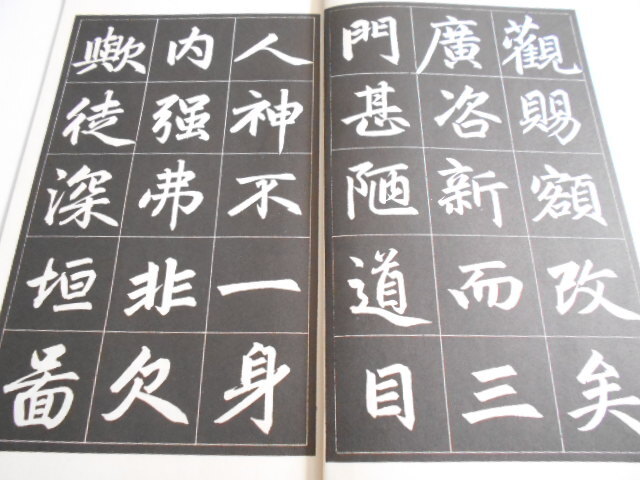 觀賜額改矣
廣咨新而三
門甚陋道目
人神不一身
内强弗非欠
歟徒深垣啚